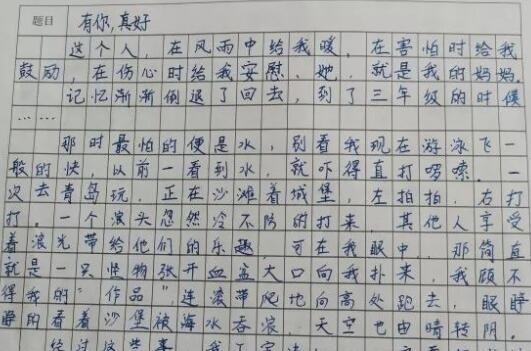 题目 有你,真好
这个人,在风雨中给我暖,在害怕时给我
鼓励,在伤心时给我安慰。她,就是我的妈妈。
记忆渐渐倒退了回去,到了三年级的时候
……
那时最怕的便是水,别看我现在游泳飞一
般的快,以前一看到水,就吓得直打啰嗦。一
次去青岛玩,正在沙滩着城堡,左拍拍,右打
打。一个浪头忽然冷不防的打来,其他人享受
着浪光带给他们的乐趣,可在我眼中,那简直
就是一只怪物张开血盆大口向我扑来,我顾不
得我的“作品”,连滚带爬地向高处跑去,眼睁
睁的看着沙堡被海水吞浪,天空也由晴转阴。
经过这些事,我下定决